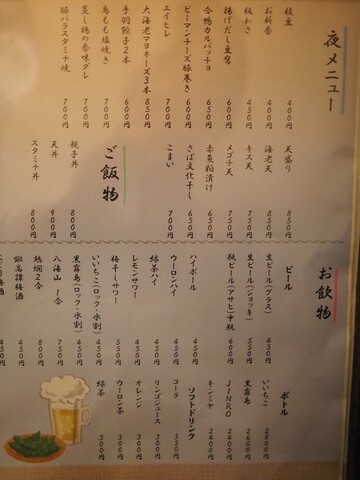 夜メニュー
枝豆 400円
お新香 400円
板わさ 450円
揚げだし豆腐 650円
合鴨カルパッチョ 650円
ピーマンチーズ豚巻き 600円
エイヒレ 700円
大海老マヨネーズ3本 850円
手羽餃子2本 700円
鳥もも塩焼き 700円
蒸し鶏の香味ダレ 700円
豚バラスタミナ焼 700円
天盛り 850円
海老天 850円
キス天 750円
メゴチ天 750円
赤魚粕漬け 650円
さば文化干し 650円
こまい 700円
ご飯物
親子丼 800円
天丼 900円
スタミナ丼 800円
お飲物
ビール
生ビール(グラス) 450円
生ビール(ジョッキ) 550円
瓶ビール(アサヒ)中瓶 600円
ハイボール 450円
ウーロンハイ 450円
緑茶ハイ 450円
レモンサワー 450円
梅干しサワー 550円
いいちこ(ロック・水割) 450円
黒霧島(ロック・水割) 450円
八海山 1合 750円
熱燗2合 800円
450円
450円
ボトル
いいちこ 2800円
黒霧島 2600円
JINRO 2400円
キンミヤ 2400円
ソフトドリンク
コーラ 350円
リンゴジュース 300円
オレンジ 300円
ウーロン茶 300円
緑茶 300円